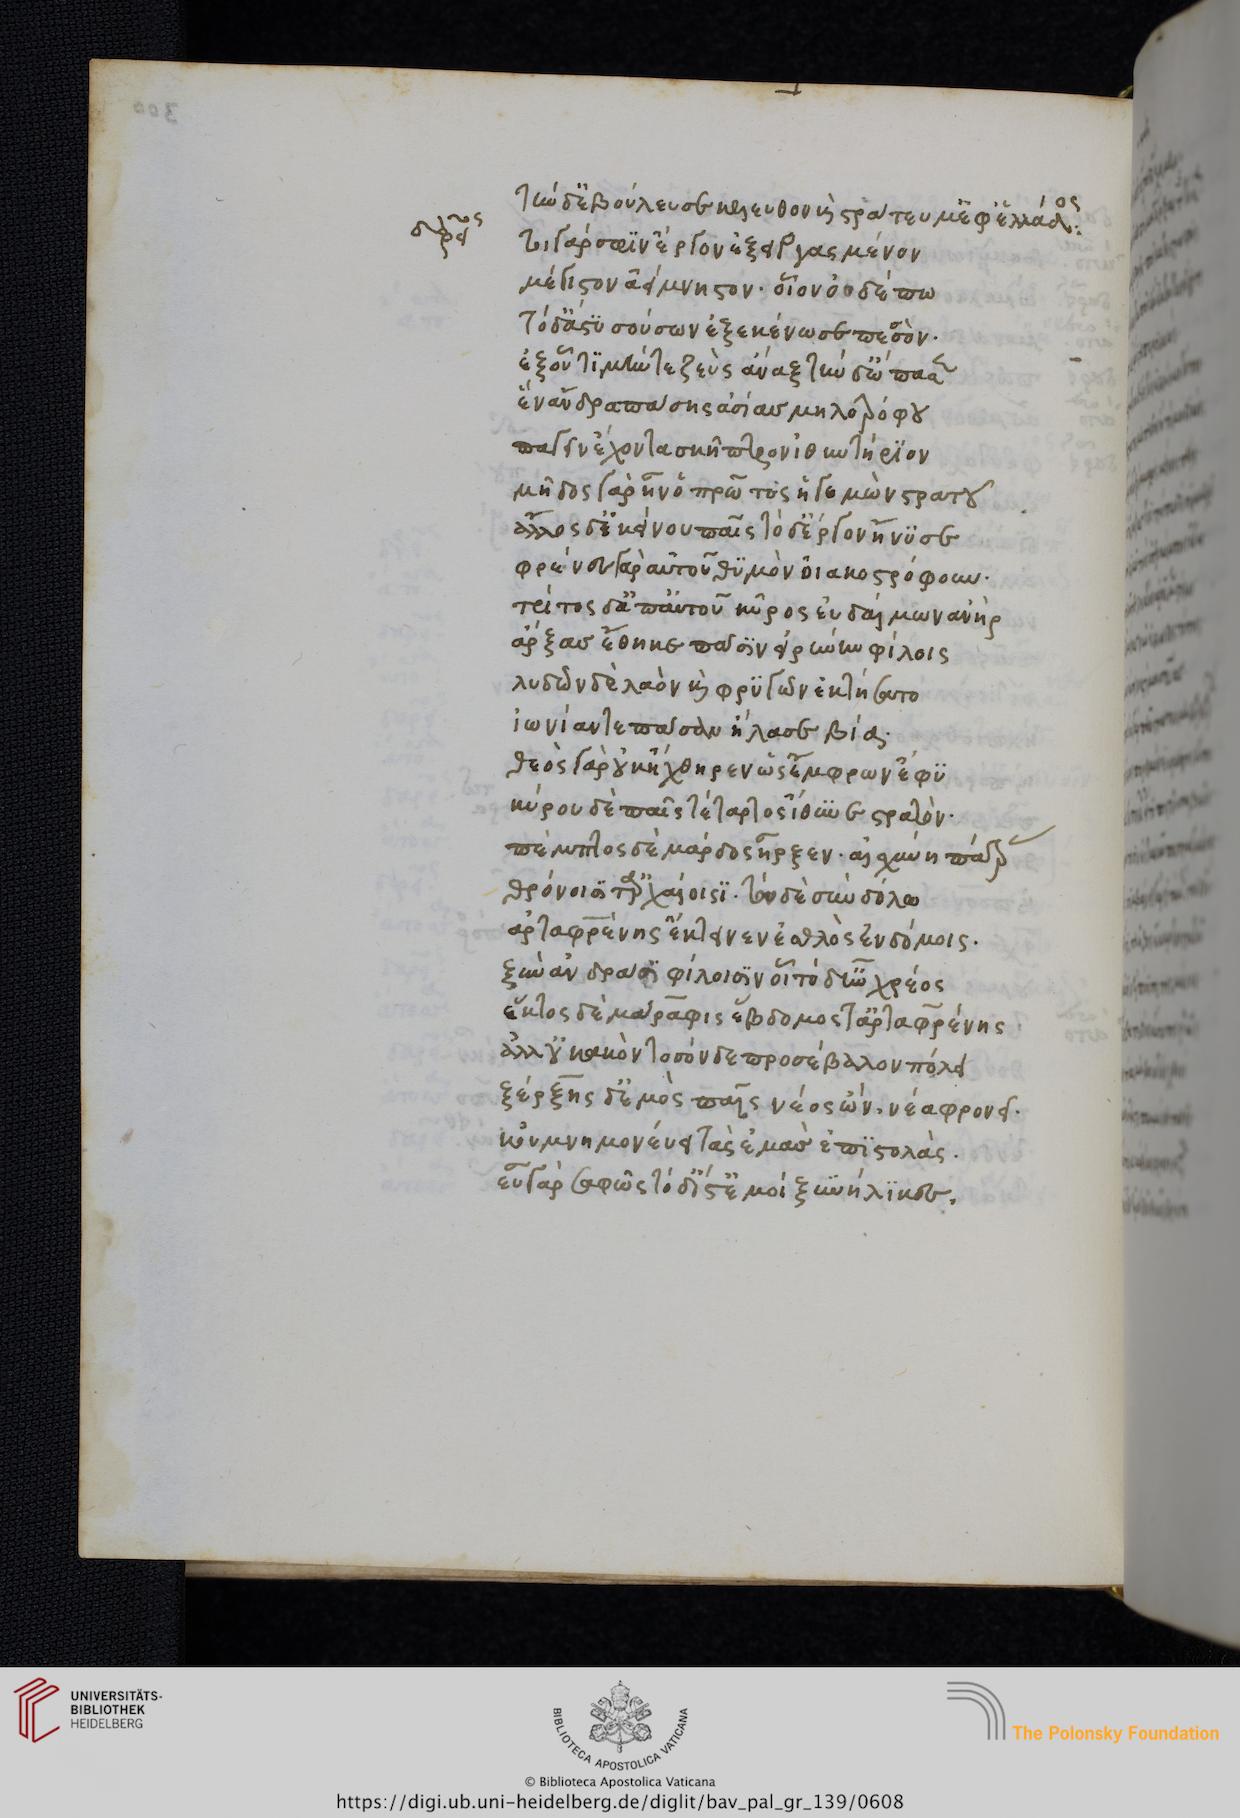 300
τήνδ' ἐβούλευσεν κέλευθον καὶ στράτευμ' ἐφ' ἑλλάδος:
δαρεῖος
τοιγάρ σφιν ἔργον ἐξειργασμένον
μέγιστον ἀείμνηστον. οἷον οὐδέπω
τόδ' ἄστυ σούσων ἐξεκένωσεν πεσόν.
ἐξ οὗτε τιμὴν ζεὺς ἄναξ τήνδ' ὤπασεν
ἕν' ἄνδρα πάσης ἀσίας μηλοτρόφου
ταγεῖν ἔχοντα σκῆπτρον ἰθυντήριον
μῆδος γὰρ ἦν ὁ πρῶτος ἡγεμὼν στρατοῦ
ἄλλος δ' ἐκείνου παῖς τόδ' ἔργον ἤνυσεν
φρένες γὰρ αὐτοῦ θυμὸν οἰακοστρόφουν.
τρίτος δ' ἀπ' αὐτοῦ κῦρος εὐδαίμων ἀνὴρ
ἄρξας ἔθηκε πᾶσιν εἰρήνην φίλοις
λυδῶν δὲ λαὸν καὶ φρυγῶν ἐκτήσατο
ἰωνίαν τε πᾶσαν ἤλασεν βίᾳ.
θεὸς γὰρ οὐκ ἤχθηρεν ὡς εὔφρων ἔφυ
κύρου δὲ παῖς τέταρτος ἴθυνε στρατόν.
πέμπτος δὲ μάρδος ἦρξεν. αἰσχύνη πάτρᾳ
θρόνοισί τ' ἀρχαίοισι. τὸν δὲ σὺν δόλῳ
ἀρταφρένης ἔκτεινεν ἐσθλὸς ἐν δόμοις.
ξὺν ἀνδράσι φίλοισιν οἷς τόδ' ἦν χρέος
ἕκτος δὲ μάραφις ἕβδομος τ' ἀρταφρένης
ἀλλ' οὐ κακὸν τοσόνδε προσέβαλον πόλει
ξέρξης δ' ἐμὸς παῖς νέος ὢν, νέα φρονεῖ.
κοὐ μνημονεύει τὰς ἐμὰς ἐπιστολάς.
εὖ γὰρ σαφῶς τόδ' ἴστ' ἐμοὶ ξυνήλικες,
UNIVERSITÄTS-
BIBLIOTHEK
HEIDELBERG
BIBLIOTECA APOSTOLICA VATICANA
© Biblioteca Apostolica Vaticana
The Polonsky Foundation
https://digi.ub.uni-heidelberg.de/diglit/bav_pal_gr_139/0608